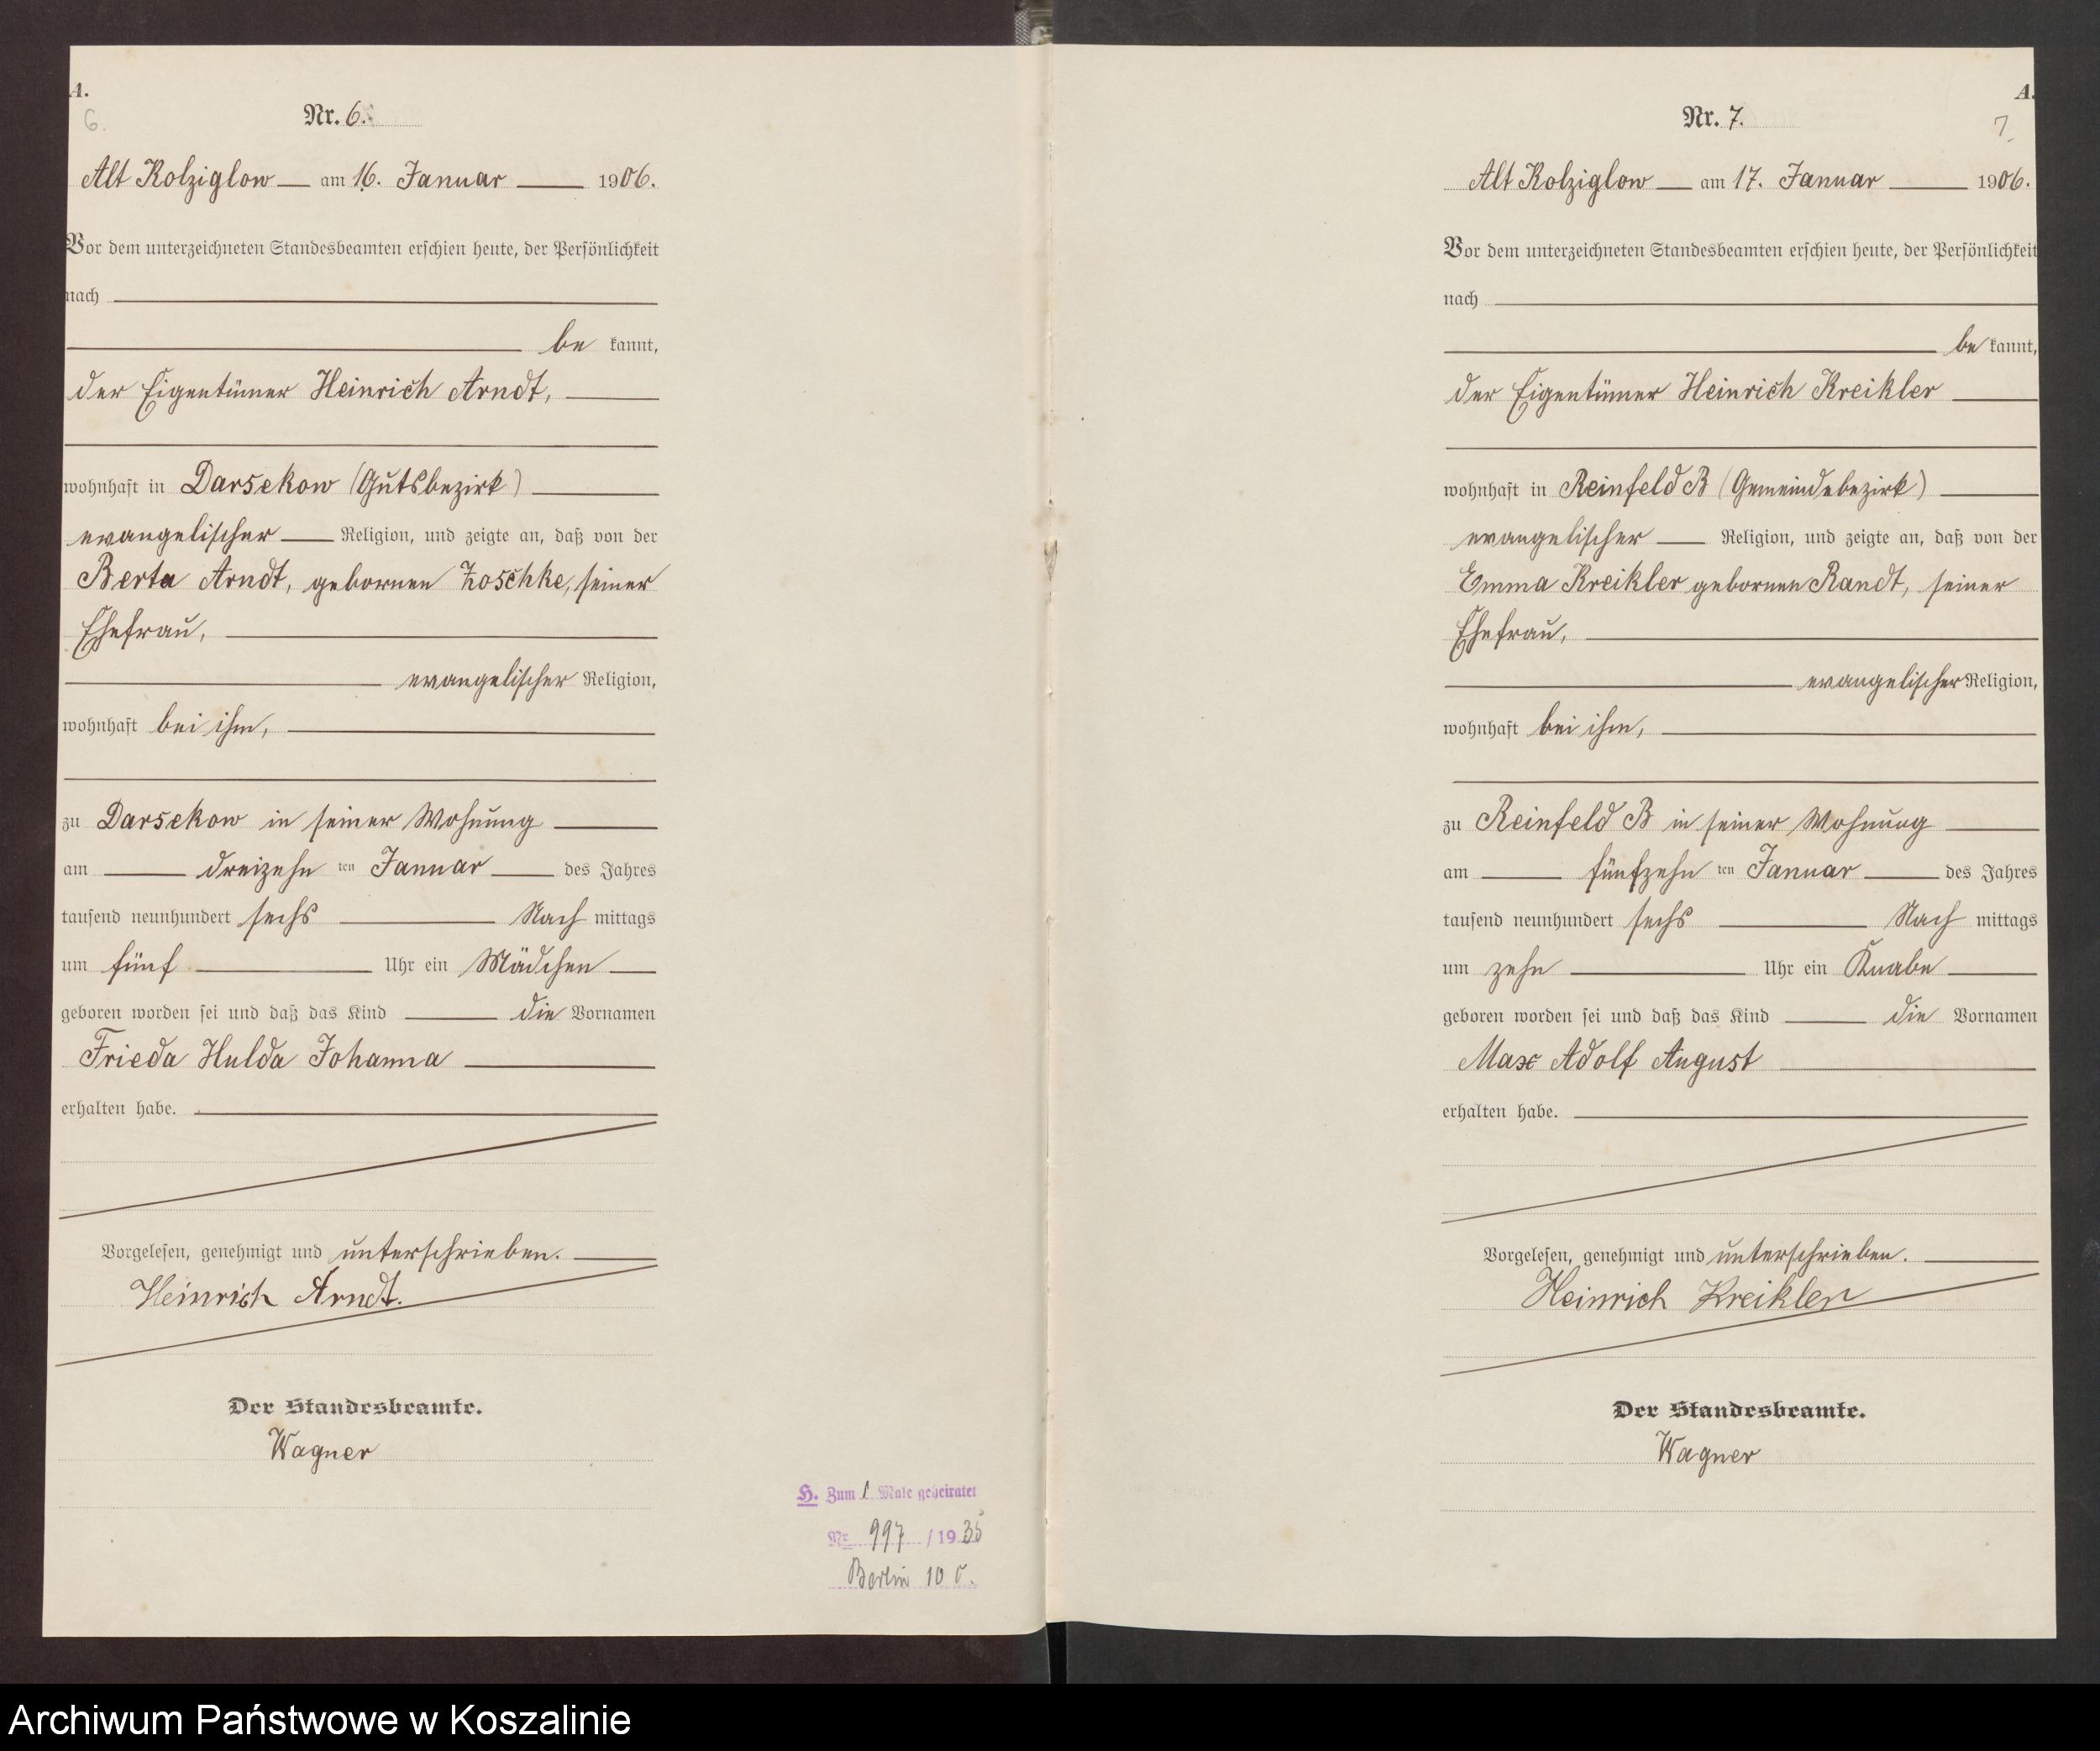 A.
6.
Nr. 6.
Alt Kolziglow am 16. Januar 1906.
Vor dem unterzeichneten Standesbeamten erschien heute, der Persönlichkeit
nach
be kannt,
der Eigentümer Heinrich Arndt,
wohnhaft in Darsekow (Gutsbezirk)
evangelischer Religion, und zeigte an, daß von der
Berta Arndt, gebornen Zoschke, seiner
Ehefrau,
evangelischer Religion,
wohnhaft bei ihm,
zu Darsekow in seiner Wohnung
am dreizehn ten Januar des Jahres
tausend neunhundert sechs Nach mittags
um fünf Uhr ein Mädchen
geboren worden sei und daß das Kind die Vornamen
Frieda Hulda Johanna
erhalten habe.
Vorgelesen, genehmigt und unterschrieben.
Heinrich Arndt.
Der Standesbeamte.
Wagner
H. Zum 1 Male geheiratet
Nr 997 / 1935
Berlin 10
A.
7.
Nr. 7.
Alt Kolziglow am 17. Januar 1906.
Vor dem unterzeichneten Standesbeamten erschien heute, der Persönlichkeit
nach
be kannt,
der Eigentümer Heinrich Kreikler
wohnhaft in Reinfeld B (Gemeindebezirk)
evangelischer Religion, und zeigte an, daß von der
Emma Kreikler gebornen Randt, seiner
Ehefrau,
evangelischer Religion,
wohnhaft bei ihm,
zu Reinfeld B in seiner Wohnung
am fünfzehn ten Januar des Jahres
tausend neunhundert sechs Nach mittags
um zehn Uhr ein Knabe
geboren worden sei und daß das Kind die Vornamen
Max Adolf August
erhalten habe.
Vorgelesen, genehmigt und unterschrieben.
Heinrich Kreikler
Der Standesbeamte.
Wagner
Archiwum Państwowe w Koszalinie